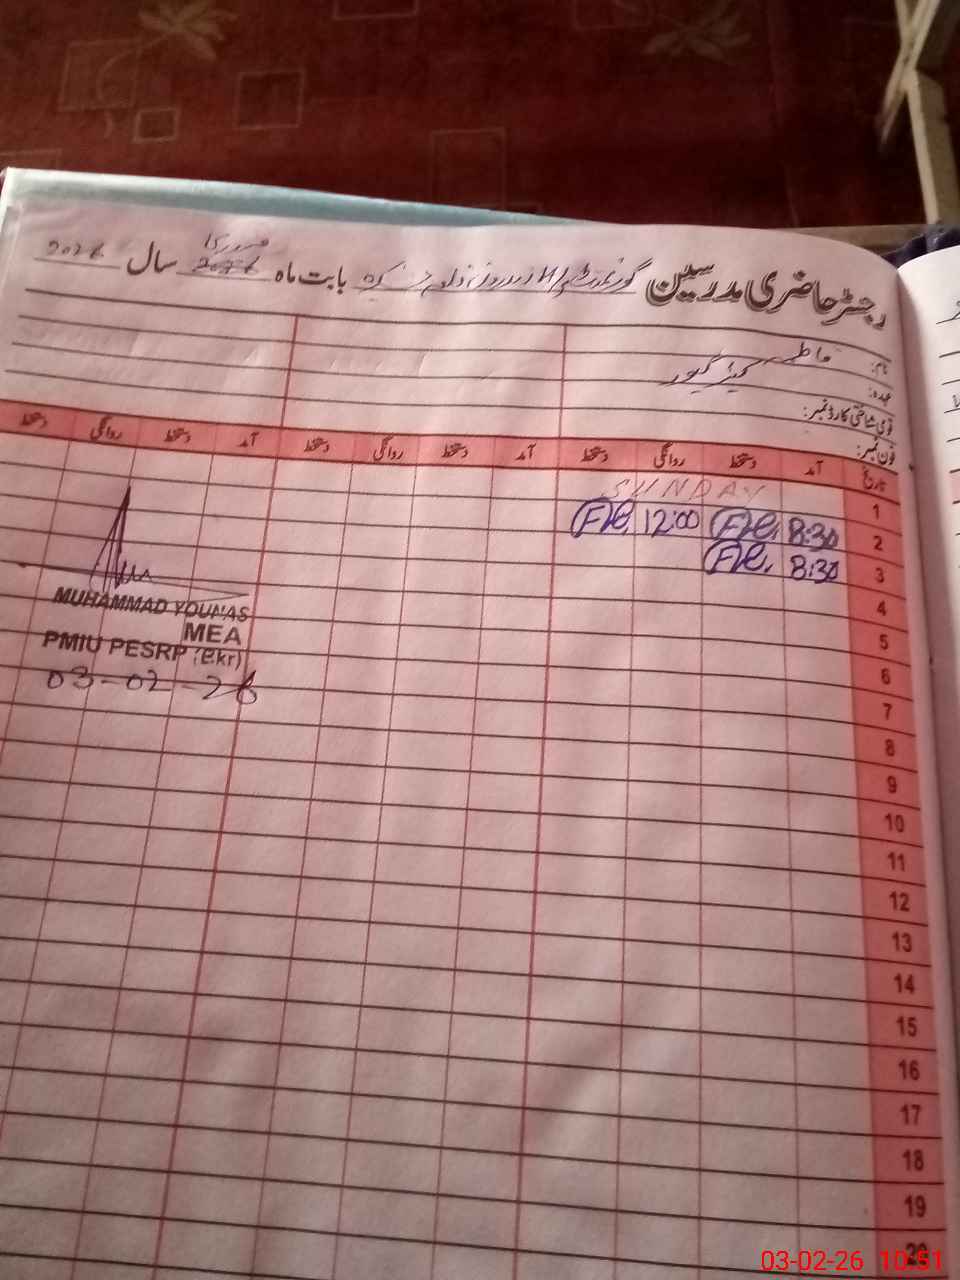 رجسٹر حاضری مدرسین گورنمنٹ بابت ماہ فروری 2026 سال 2026
نام: فاطمہ
عہدہ: کیئر گیور
قومی شناختی کارڈ نمبر:
فون نمبر:
تاریخ آمد دستخط روانگی دستخط آمد دستخط روانگی دستخط آمد دستخط روانگی دستخط
1 SUNDAY
2 8:30 12:00
3 8:30
4
5
6
7
8
9
10
11
12
13
14
15
16
17
18
19
20
MUHAMMAD YOUNAS
MEA
PMIU PESRP (Bkr)
03-02-26
03-02-26 10:51